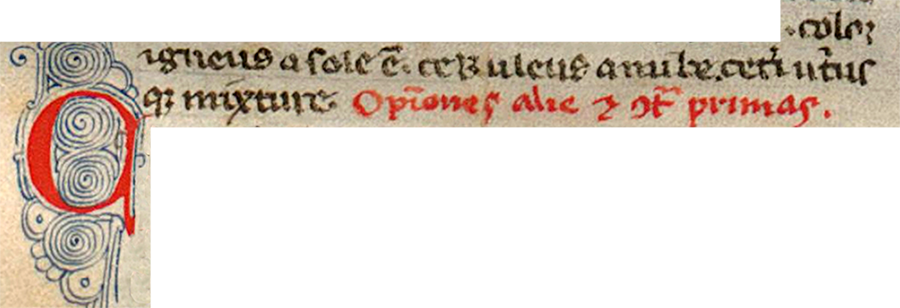 . coloꝛ
igneus a sole ē. ceruleus a nube. ceti utͥus
qꝫ mixture. Opīones alie ⁊ ꝯtͣ primas.
Q